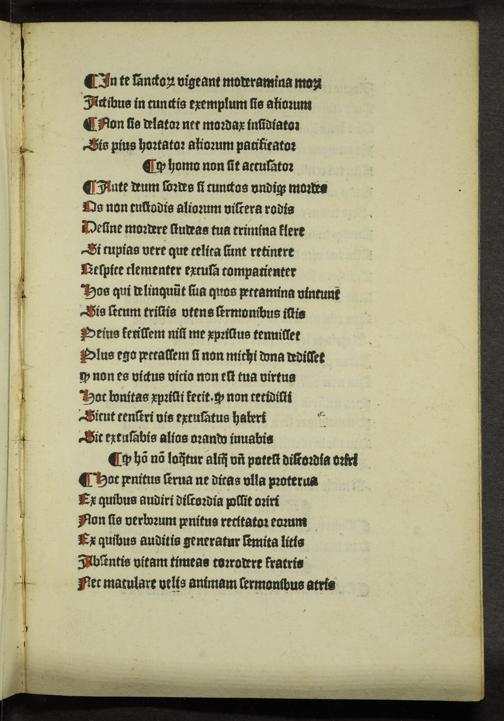 ¶In te sanctoꝝ vigeant moderamina moꝝ
Actibus in cunctis exemplum sis aliorum
¶Non sis delator nec mordax insidiator
Sis pius hortator aliorum pacificator
¶Ꝙ homo non sit accusator
¶Ante deum sordes si cunctos vndiqꝫ mordes
Os non custodis aliorum viscera rodis
Desine mordere studeas tua crimina flere
Si cupias vere que celica sunt retinere
Respice clementer excusa compacienter
Hos qui delinquūt sua quos peccamina vincunt
Sis secum tristis vtens sermonibus istis
Peius fecissem nisi me xpristus tenuisset
Plus ego peccassem si non michi dona dedisset
Ꝙ non es victus vicio non est tua virtus
Hoc bonitas xpristi fecit. ꝙ non cecidisti
Sicut censeri vis excusatus haberi
Sic excusabis alios orando iuuabis
¶Ꝙ hō nō loq̄tur aliq̄ vn̄ potest discordia oriri
¶Hoc penitus serua ne dicas vlla proterua
Ex quibus audiri discordia possit oriri
Non sis verborum penitus recitator eorum
Ex quibus auditis generatur semita litis
Absentis vitam timeas corrodere fratris
Nec maculare velis animam sermonibus atris